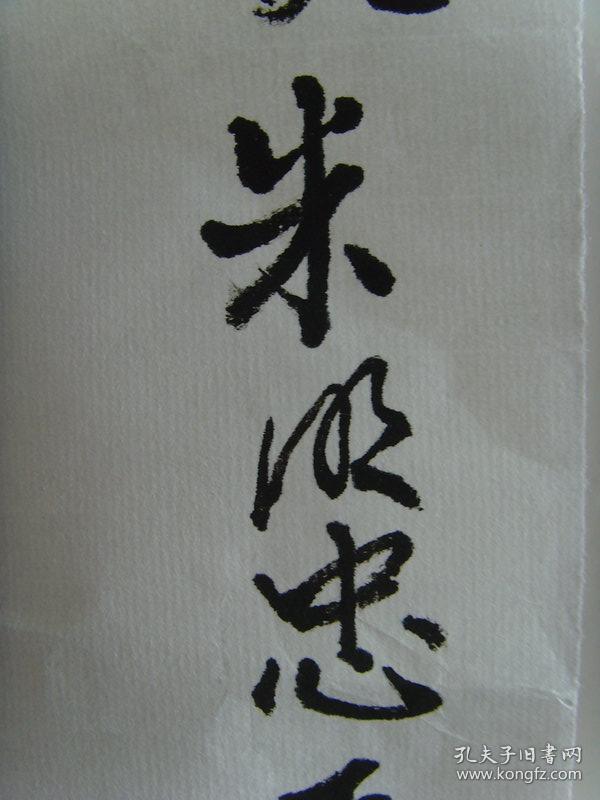 朱
忠
孔夫子旧書网
www.kongfz.com